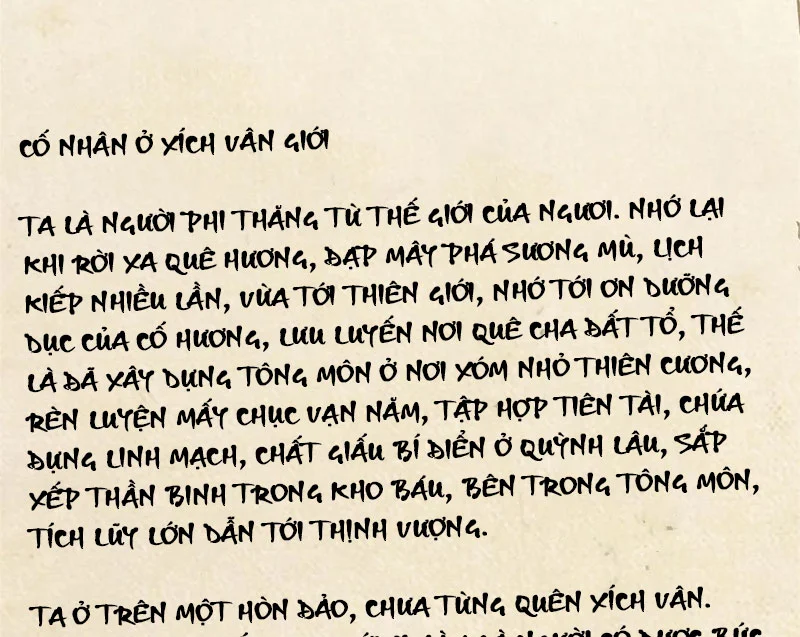 CỐ NHÂN Ở XÍCH VÂN GIỚI
TA LÀ NGƯỜI PHI THĂNG TỪ THẾ GIỚI CỦA NGƯƠI. NHỚ LẠI
KHI RỜI XA QUÊ HƯƠNG, ĐẠP MÂY PHÁ SƯƠNG MÙ, LỊCH
KIẾP NHIỀU LẦN, VỪA TỚI THIÊN GIỚI, NHỚ TỚI ƠN DƯỠNG
DỤC CỦA CỐ HƯƠNG, LƯU LUYẾN NƠI QUÊ CHA ĐẤT TỔ, THẾ
LÀ ĐÃ XÂY DỰNG TÔNG MÔN Ở NƠI XÓM NHỎ THIÊN CƯƠNG,
RÈN LUYỆN MẤY CHỤC VẠN NĂM, TẬP HỢP TIÊN TÀI, CHỨA
ĐỰNG LINH MẠCH, CHẤT GIẤU BÍ ĐIỂN Ở QUỲNH LÂU, SẮP
XẾP THẦN BINH TRONG KHO BÁU, BÊN TRONG TÔNG MÔN,
TÍCH LŨY LỚN DẪN TỚI THỊNH VƯỢNG.
TA Ở TRÊN MỘT HÒN ĐẢO, CHƯA TỪNG QUÊN XÍCH VÂN.
NGƯỜI CÓ ĐƯỢC BỨC